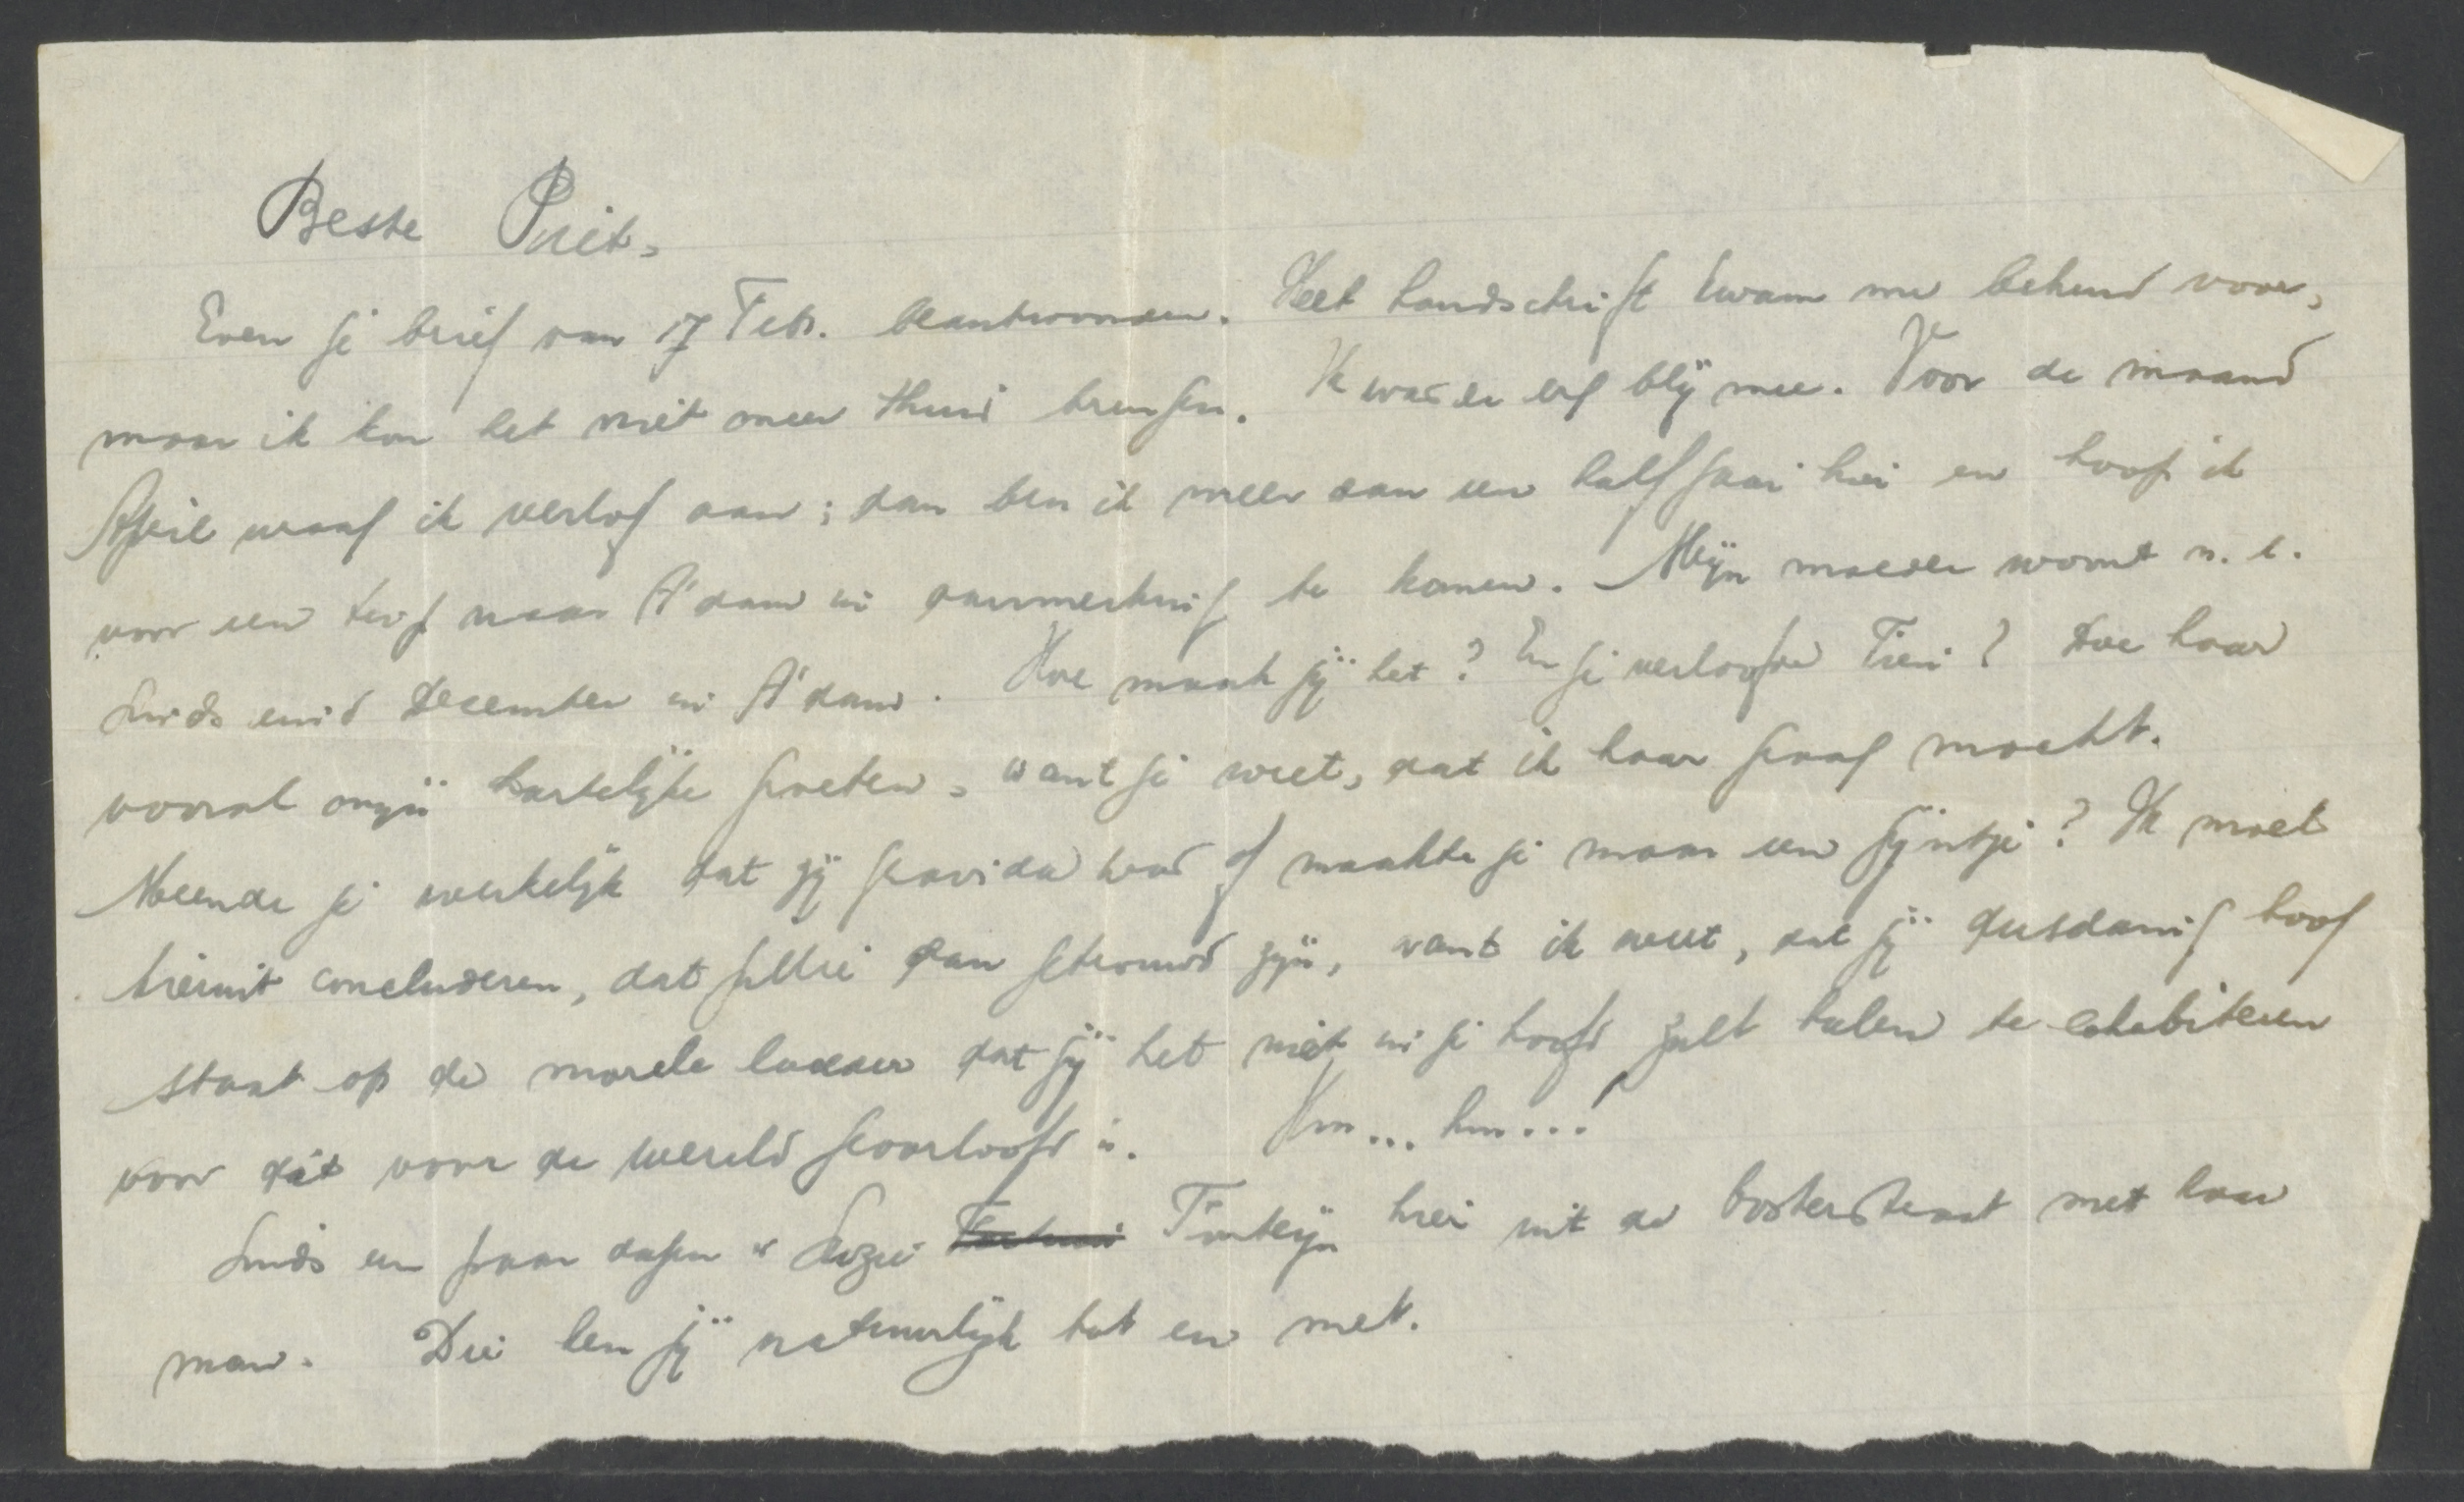 Beste Piet,
Even je brief van 17 Febr. beantwoorden. Het handschrift kwam me bekend voor,
maar ik kon het niet meer thuis brengen. Ik was er erg blij mee. Voor de maand
April vraag ik verlof aan; dan ben ik meer dan een half jaar hier en hoop ik
voor een terug naar A'dam in aanmerking te komen. Mijn moeder woont n.l.
sinds eind December in A'dam. Hoe maak jij het? En je verloofde Trees? Doe haar
vooral mijn hartelijke groeten, want je weet, dat ik haar graag mocht.
Meende je werkelijk dat zij gravida was of maakte je maar een gijntje? Ik moet
hieruit concluderen, dat jullie dan getrouwd zijn, want ik weet, dat jij dusdanig hoog
staat op de morele ladder dat jij het niet in je hoofd zult halen te cohabiteren
voor dát voor de wereld geoorloofd is. Hm... hm...!
Sinds een paar dagen is Suzie Fonteijn hier uit de Oosterstraat met haar
man. Die ken jij natuurlijk tot en met.